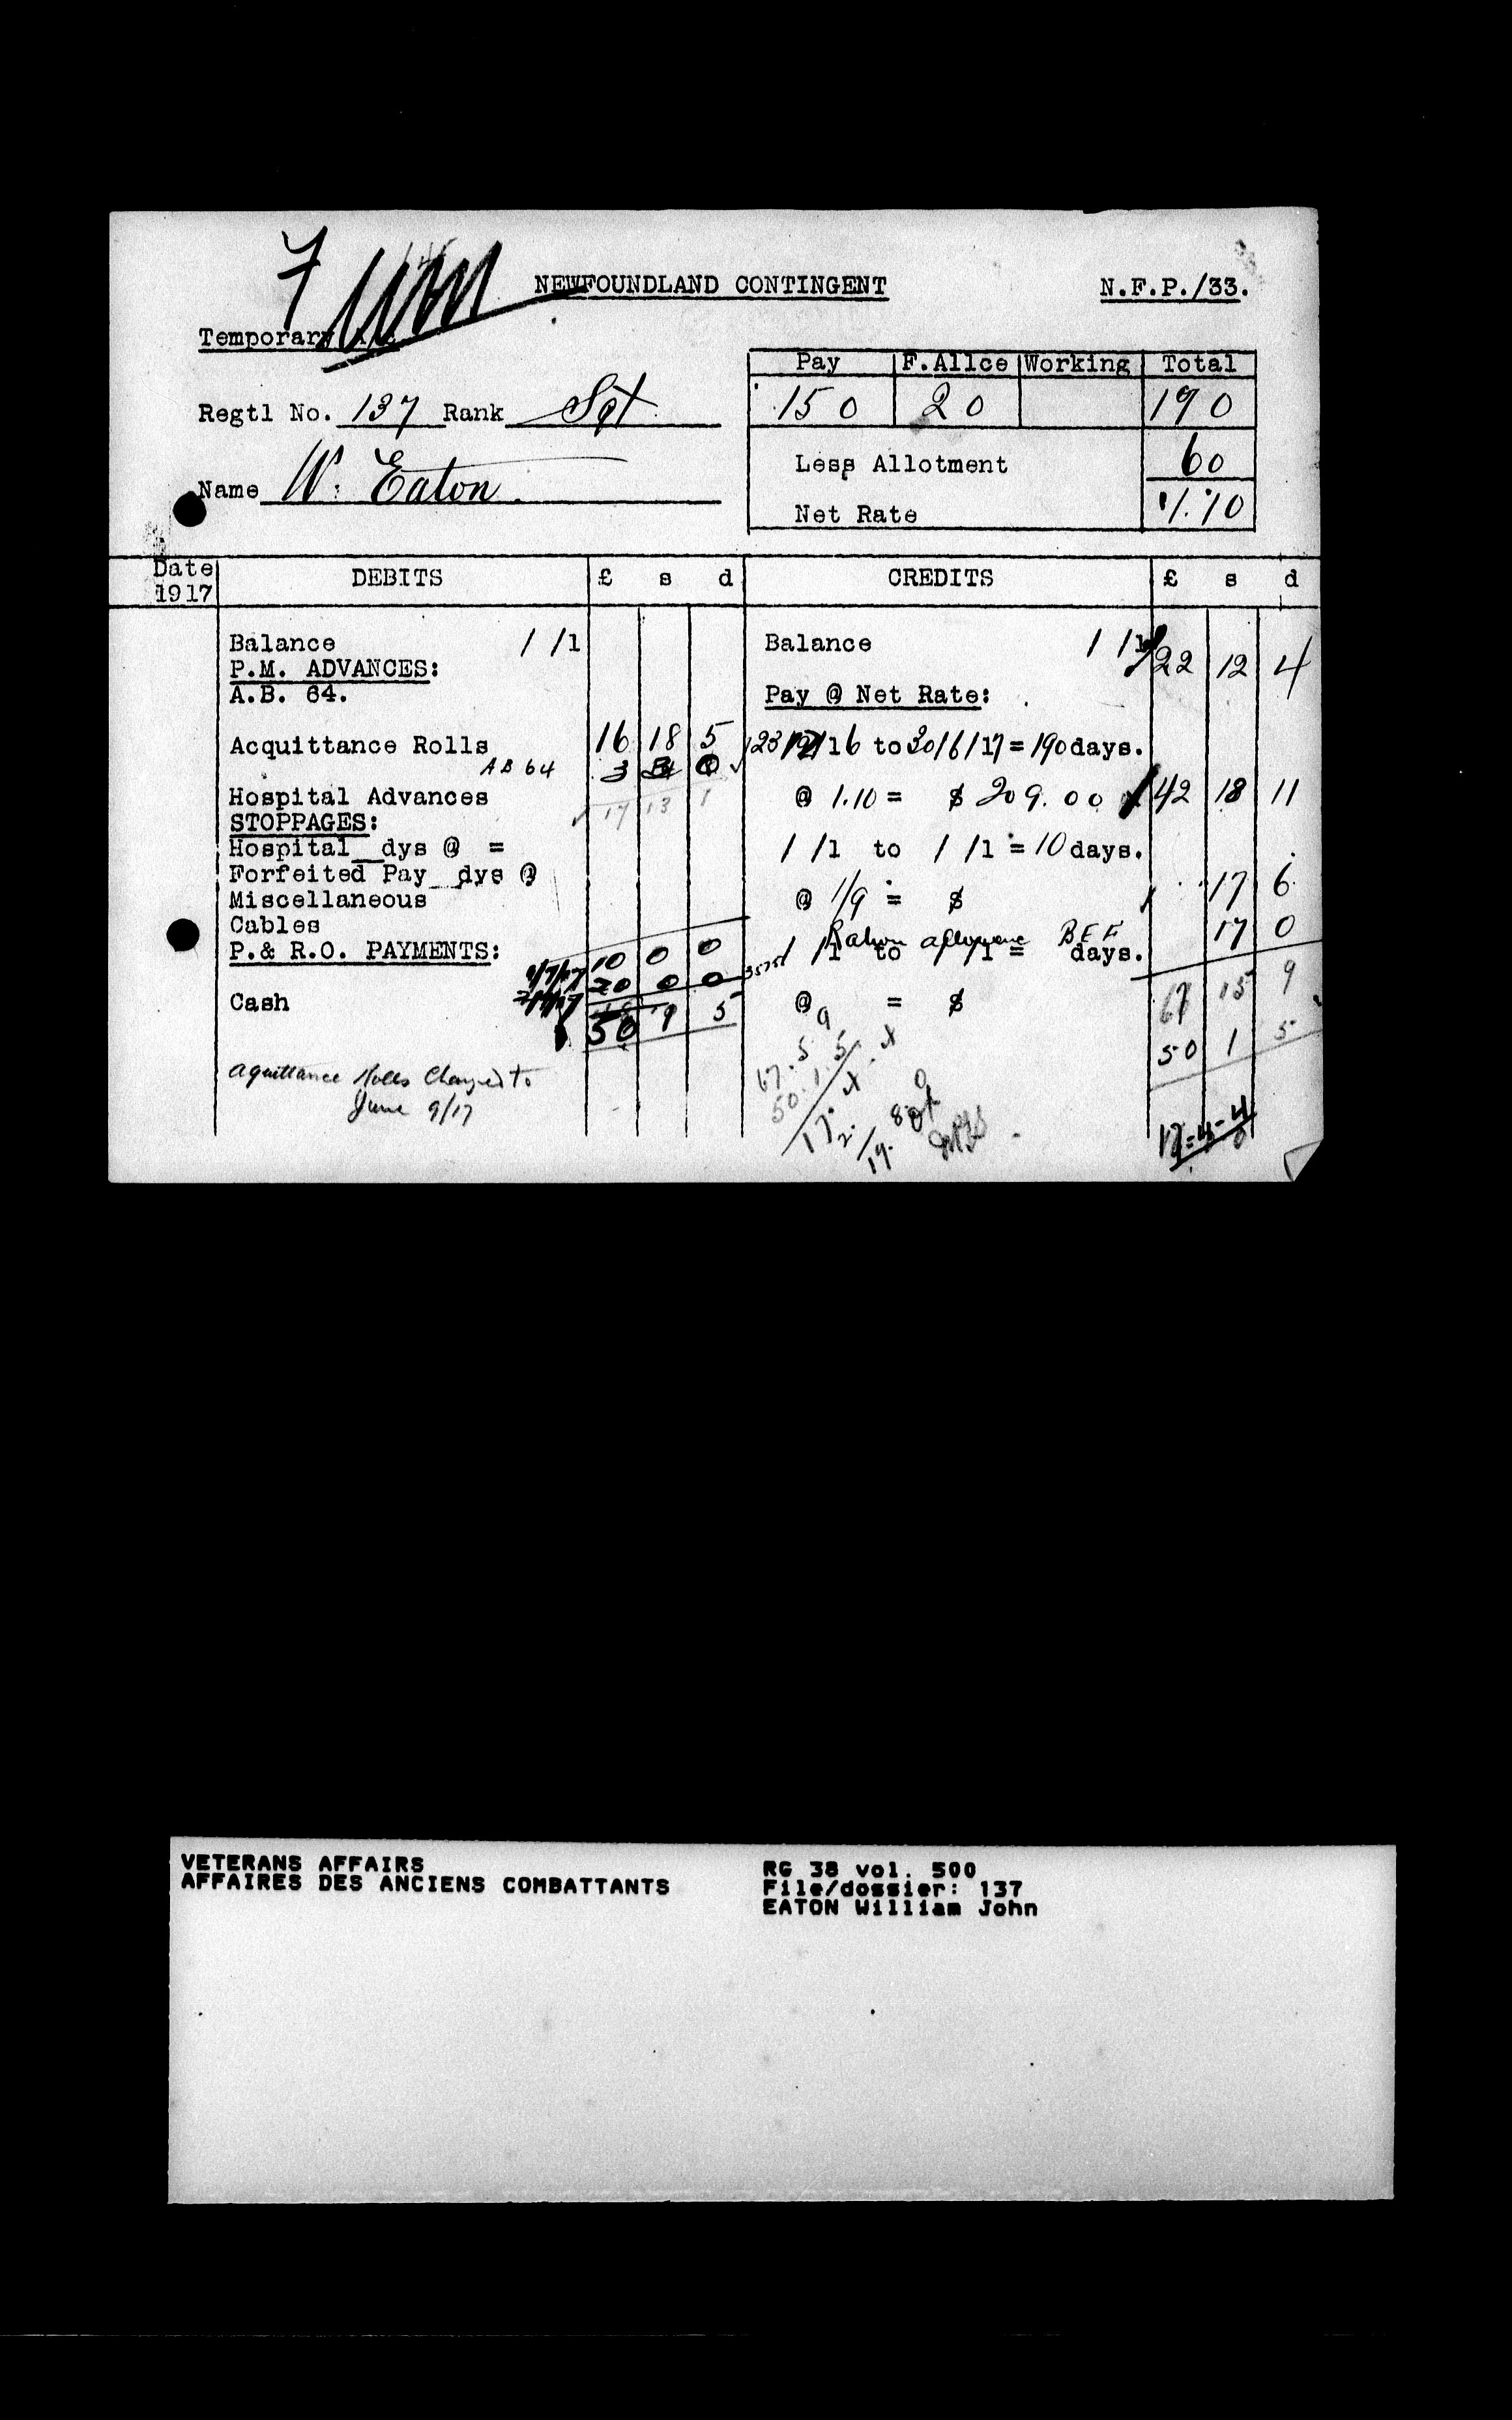 7
NEWFOUNDLAND CONTINGENT
N.F.P./33.
Temporary
Pay F.Allce Working Total
150 20 190
Regtl No. 137 Rank Sgt
Less Allotment 60
Name W. Eaton.
Net Rate 1.10
Date 1917 DEBITS £ s d CREDITS £ s d
Balance / /1 Balance / /1 22 12 4
P.M. ADVANCES:
A.B. 64. Pay @ Net Rate:
Acquittance Rolls 16 18 5 23/12/16 to 30/6/17 = 190 days.
AB 64 3
Hospital Advances 17 13 1 @ 1.10 = $ 209.00 42 18 11
STOPPAGES:
Hospital dys @ = / /1 to / /1 = 10 days.
Forfeited Pay dys @
Miscellaneous @ 1/9 = $ 17 6
Cables Ration allowance BEF 17 0
P.& R.O. PAYMENTS: / /1 to / /1 = days.
10 0 0
20 0 0
Cash @ = $ 67 15 9
50 9 5 50 1 5
Aquittance Rolls Charged to
June 9/17
17-4-4
VETERANS AFFAIRS
AFFAIRES DES ANCIENS COMBATTANTS
RG 38 vol. 500
File/dossier: 137
EATON William John